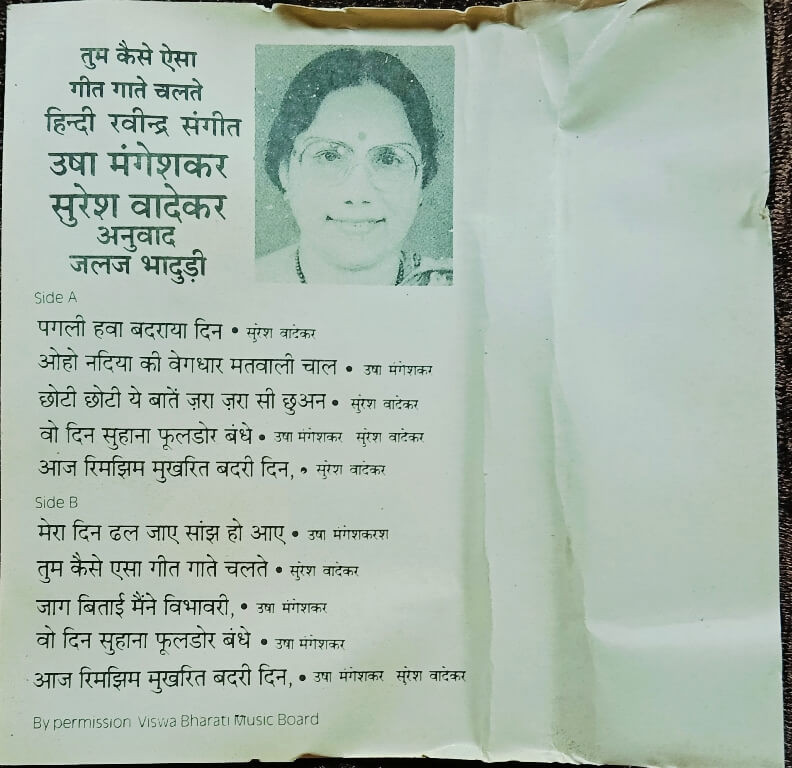 तुम कैसे ऐसा
गीत गाते चलते
हिन्दी रवीन्द्र संगीत
उषा मंगेशकर
सुरेश वादेकर
अनुवाद
जलज भादुड़ी
Side A
पगली हवा बदराया दिन • सुरेश वादेकर
ओहो नदिया की वेगधार मतवाली चाल • उषा मंगेशकर
छोटी छोटी ये बातें ज़रा ज़रा सी छुअन • सुरेश वादेकर
वो दिन सुहाना फूलडोर बंधे • उषा मंगेशकर सुरेश वादेकर
आज रिमझिम मुखरित बदरी दिन, • सुरेश वादेकर
Side B
मेरा दिन ढल जाए सांझ हो आए • उषा मंगेशकरश
तुम कैसे एसा गीत गाते चलते • सुरेश वादेकर
जाग बिताई मैंने विभावरी, • उषा मंगेशकर
वो दिन सुहाना फूलडोर बंधे • उषा मंगेशकर
आज रिमझिम मुखरित बदरी दिन, • उषा मंगेशकर सुरेश वादेकर
By permission Viswa Bharati Music Board